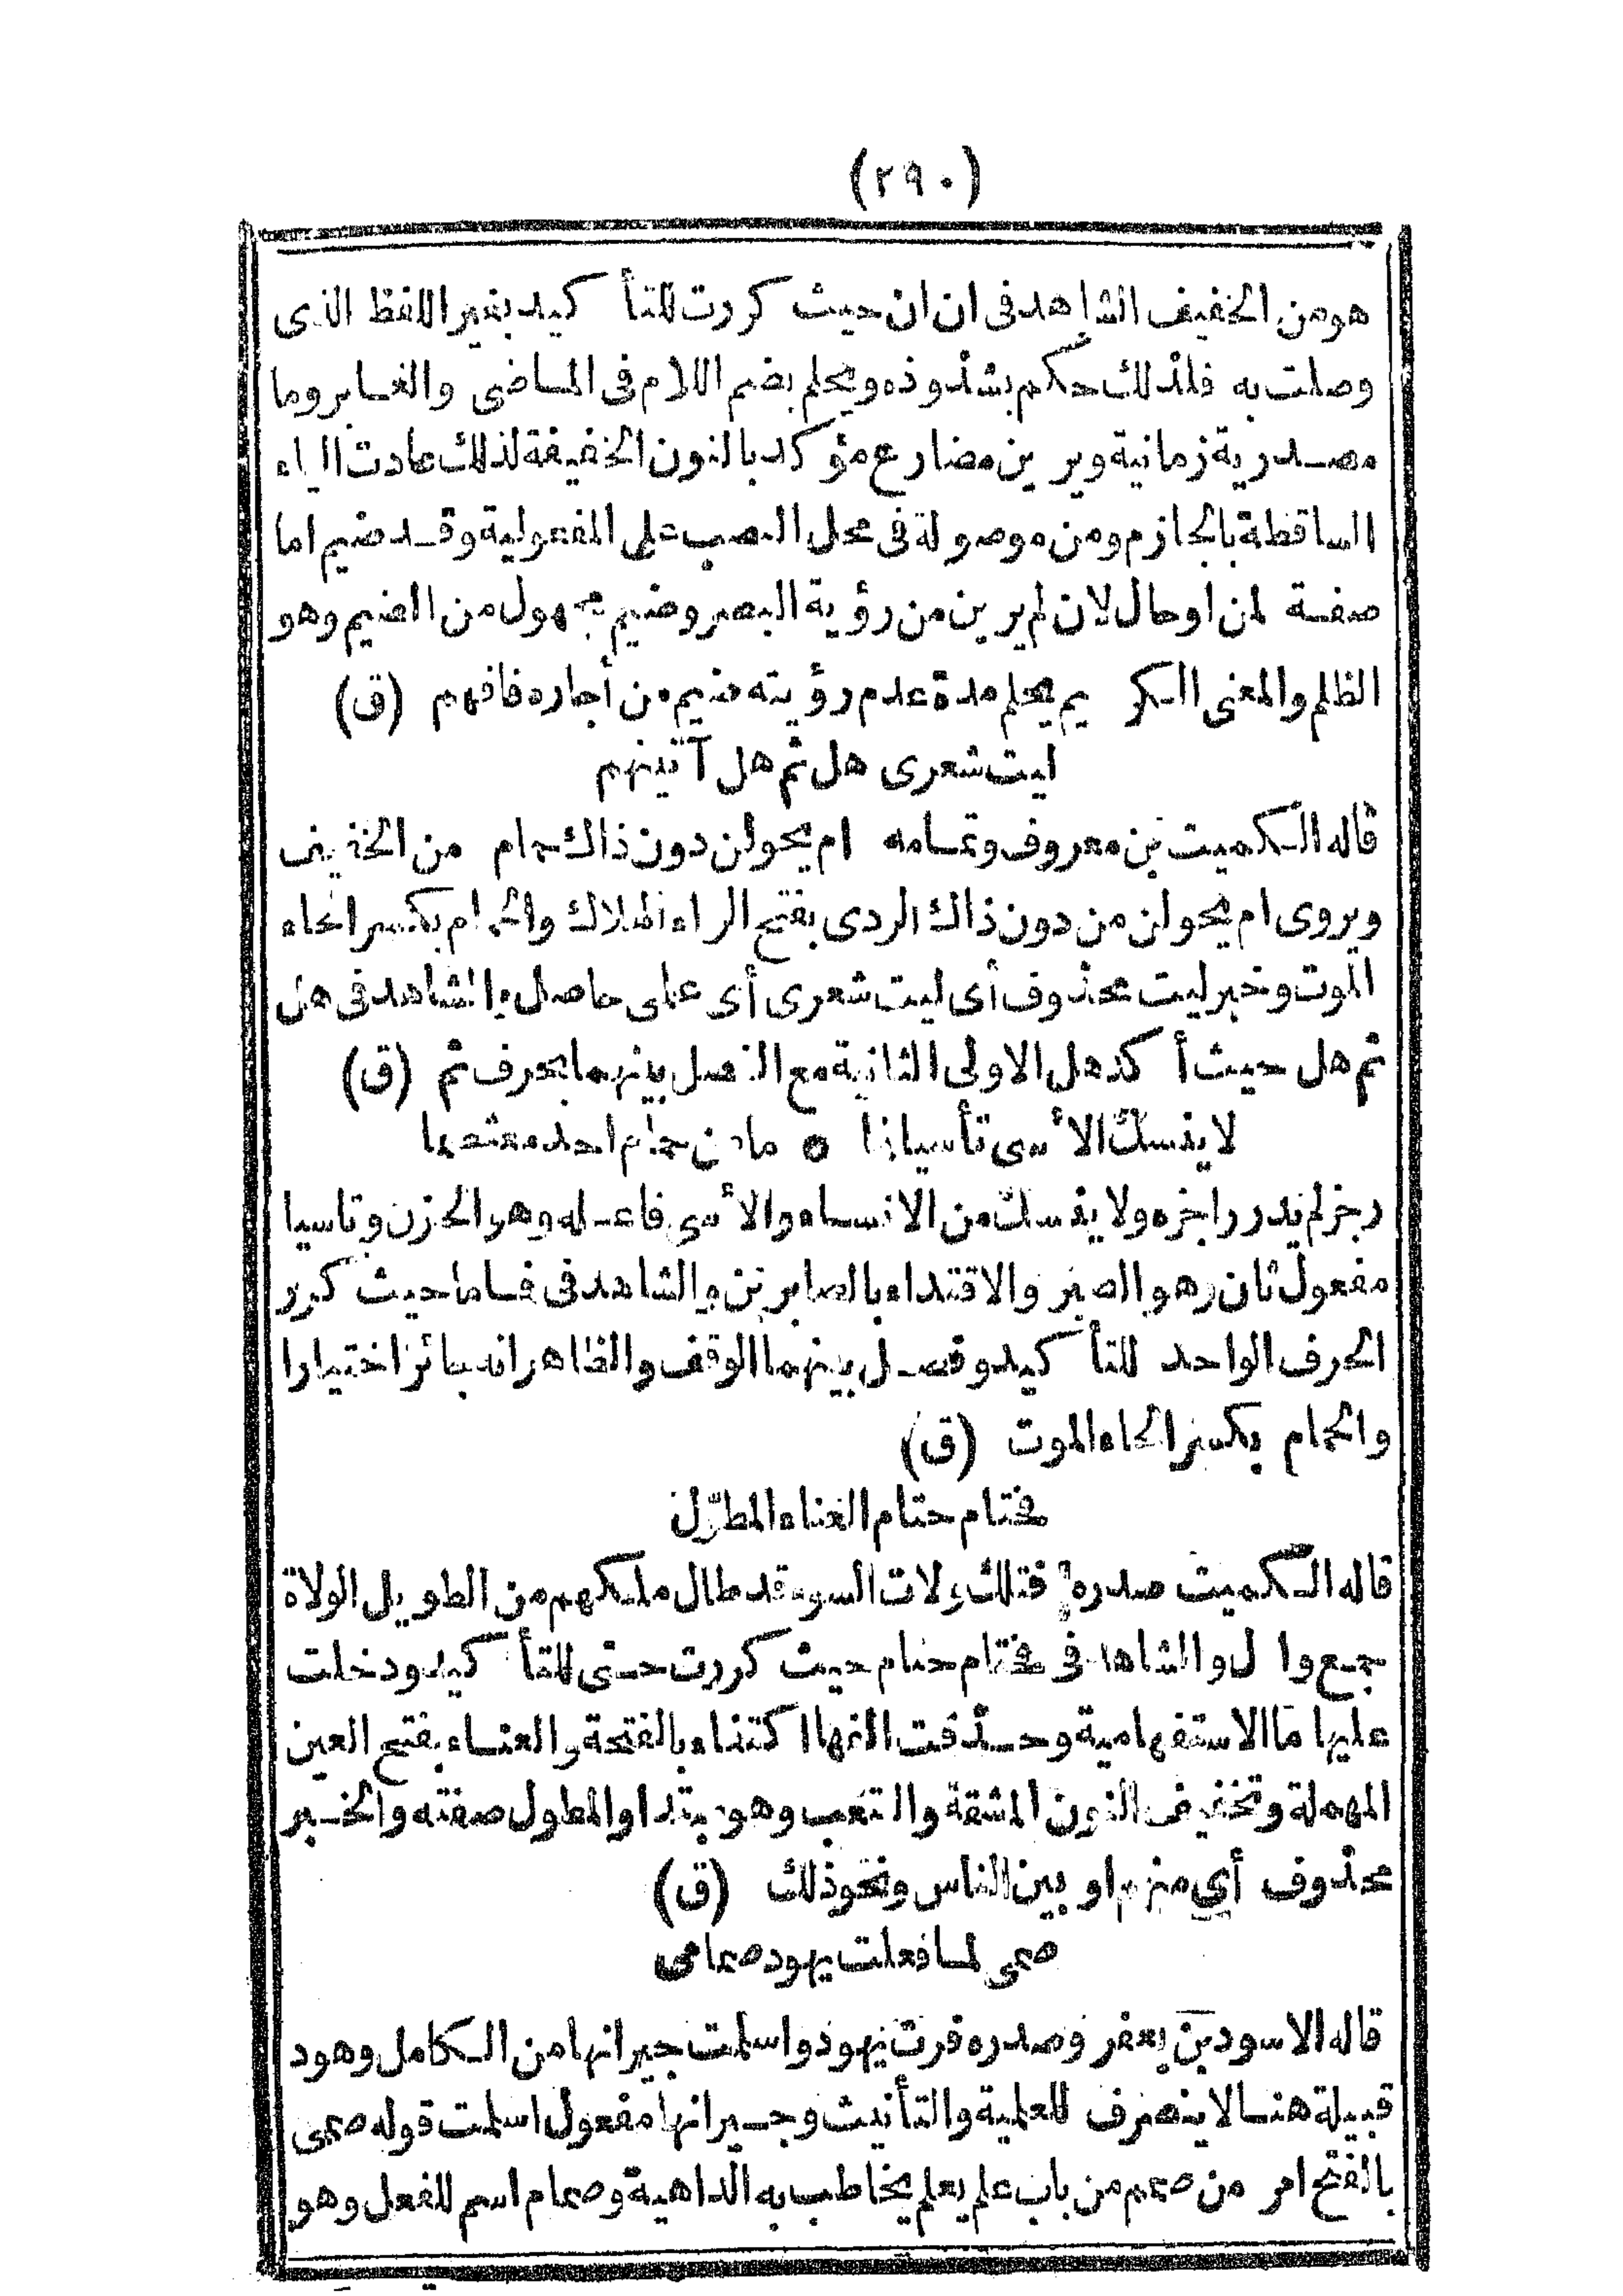 (٢٩٠)
هو من الخفيف الشاهد فى ان ان حيث كررت للتأ كيد بغير اللفظ الذى
وصلت به فلذلك حكم بشذوذه ويحلم بضم اللام فى الماضى والغابر وما
مصدرية زمانية ويرين مضارع مؤكد بالنون الخفيفة لذلك عادت الياء
الساقطة بالجازم ومن موصولة فى محل النصب على المفعولية وقد ضيم اما
صفة لمن او حال لان لم يرين من رؤية البصر وضيم مجهول من الضيم وهو
الظلم والمعنى الكريم يحلم مدة عدم رؤيته ضيم من أجاره فافهم (ق)
ليت شعرى هل ثم هل آتينهم
قاله الكميت بن معروف وتمامه ام يحولن دون ذاك حمام من الخفيف
ويروى ام يحولن من دون ذاك الردى بفتح الراء الهلاك والحمام بكسر الحاء
الموت وخبر ليت محذوف أى ليت شعرى أى على حاصل والشاهد فى هل
ثم هل حيث أ كد هل الاولى الثانية مع الفصل بينهما بحرف ثم (ق)
لا ينسك الأسى تأسيا فما o ما من حمام احد معتصما
رجز لم يدر راجزه ولا ينسك من الانساء والأسى فاعله وهو الحزن وتاسيا
مفعول ثان وهو الصبر والاقتداء بالصابرين والشاهد فى فما ما حيث كرر
الحرف الواحد للتأ كيد وفصل بينهما الوقف والظاهر انه جائز اختيارا
والحمام بكسر الحاء الموت (ق)
فحتام حتام العناء المطوّل
قاله الكميت صدره فتلك ولات السوء قد طال ملكهم من الطويل الولاة
جمع وال والشاهد فى فحتام حتام حيث كررت حتى للتأ كيد ودخلت
عليها ما الاستفهامية وحذفت الفها اكتفاء بالفتحة والعناء بفتح العين
المهملة وتخفيف النون المشقة والتعب وهو مبتدا والمطول صفته والخبر
محذوف أي منهم او بين الناس ونحو ذلك (ق)
صمى لما فعلت يهود صمامى
قاله الاسود بن يعفر وصدره فرت يهود واسلمت جيرانها من الكامل وهود
قبيلة هنا لا ينصرف للعلمية والتأنيث وجيرانها مفعول اسلمت قوله صمى
بالفتح امر من صمم من باب علم يعلم يخاطب به الداهية وصمام اسم للفعل وهو